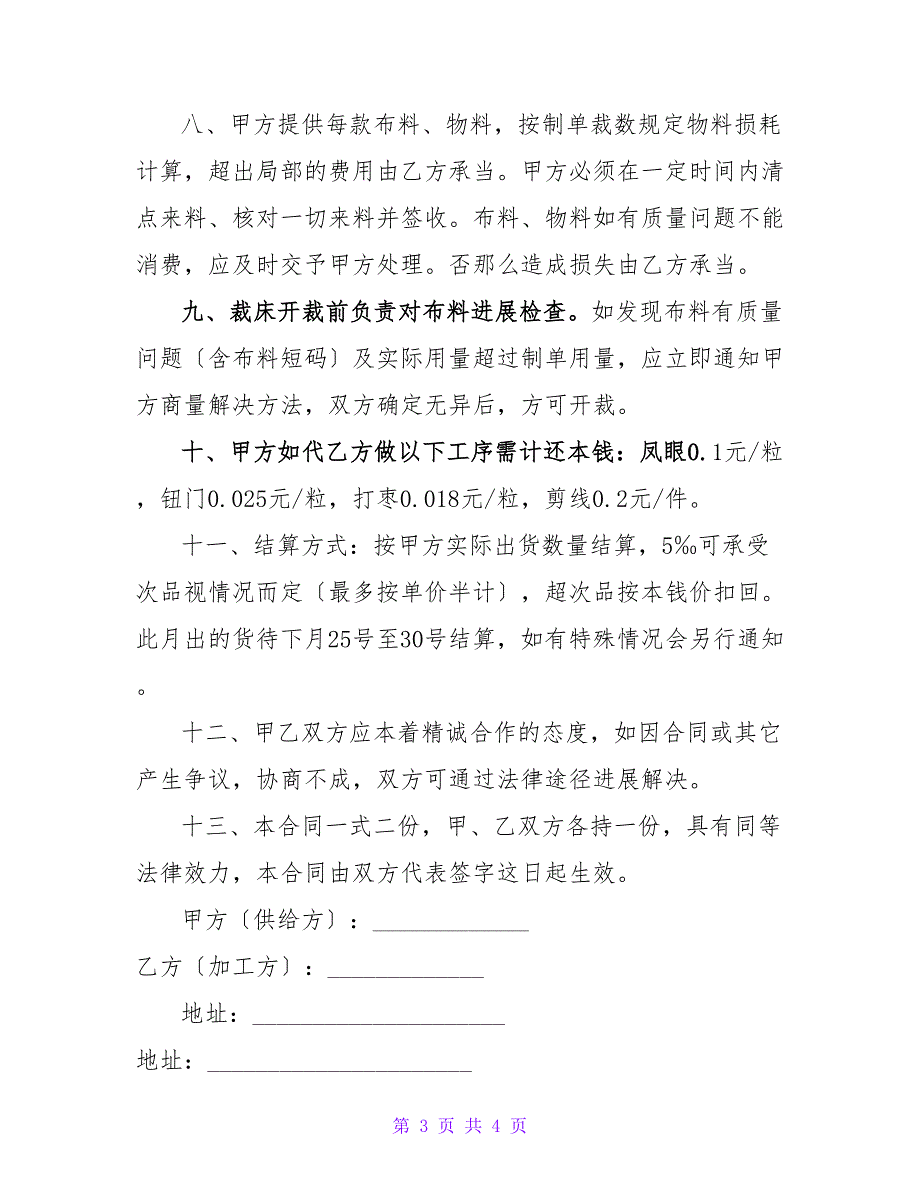 八、甲方提供每款布料、物料，按制单裁数规定物料损耗
计算，超出局部的费用由乙方承当。甲方必须在一定时间内清
点来料、核对一切来料并签收。布料、物料如有质量问题不能
消费，应及时交予甲方处理。否那么造成损失由乙方承当。
九、裁床开裁前负责对布料进展检查。如发现布料有质量
问题〔含布料短码〕及实际用量超过制单用量，应立即通知甲
方商量解决方法，双方确定无异后，方可开裁。
十、甲方如代乙方做以下工序需计还本钱：凤眼0.1元/粒
，钮门0.025元/粒，打枣0.018元/粒，剪线0.2元/件。
十一、结算方式：按甲方实际出货数量结算，5‰可承受
次品视情况而定〔最多按单价半计〕，超次品按本钱价扣回。
此月出的货待下月25号至30号结算，如有特殊情况会另行通知
。
十二、甲乙双方应本着精诚合作的态度，如因合同或其它
产生争议，协商不成，双方可通过法律途径进展解决。
十三、本合同一式二份，甲、乙双方各持一份，具有同等
法律效力，本合同由双方代表签字这日起生效。
甲方〔供给方〕：_____________
乙方〔加工方〕：_____________
地址：_____________________
地址：______________________
第 3 页 共 4 页